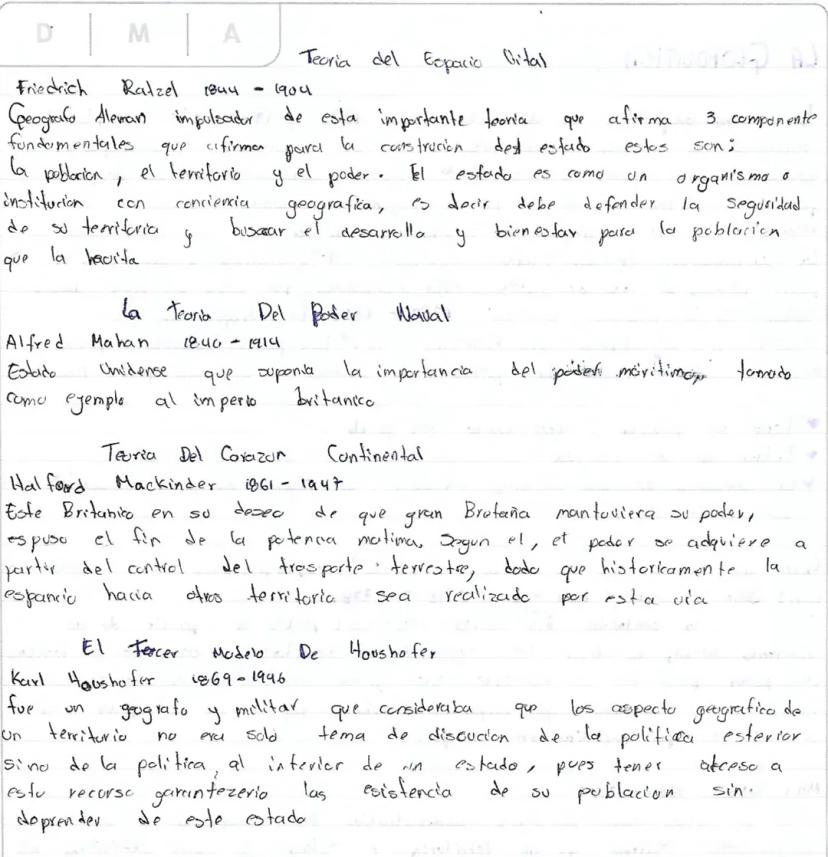 D M A
Teoria del Espacio Vital
Friedrich Ratzel 1844 - 1904
Geografo Aleman impulsador de esta importante teoria que afirma 3 componente
fundamentales que afirman para la construcion del estado estos son:
la poblacion, el territorio y el poder. El estado es como un organismo o
institucion con conciencia geografica, es decir debe defender la seguridad
de su territorio y buscar el desarrollo y bienestar para la poblacion
que la havita
La Teoria Del Poder Naval
Alfred Mahan 1840 - 1914
Estado Unidense que suponia la importancia del poder maritimo tomado
como ejemplo al imperio britanico
Teoria Del Corazon Continental
Halford Mackinder 1861 - 1947
Este Britanico en su deseo de que gran Bretaña mantuviera su poder,
espuso el fin de la potencia matima. Segun el, el poder se adquiere a
partir del control del trasporte terrestre, dado que historicamente la
espancio hacia otros territorio sea realizado por esta via
El Tercer Modelo De Houshofer
Karl Houshofer 1869-1946
fue un geografo y militar que consideraba que los aspecto geografico de
un territorio no era solo tema de discucion de la politica esterior
sino de la politica al interior de un estado, pues tener acceso a
este recurso garantezerio las esistencia de su poblacion sin
deprender de este estado